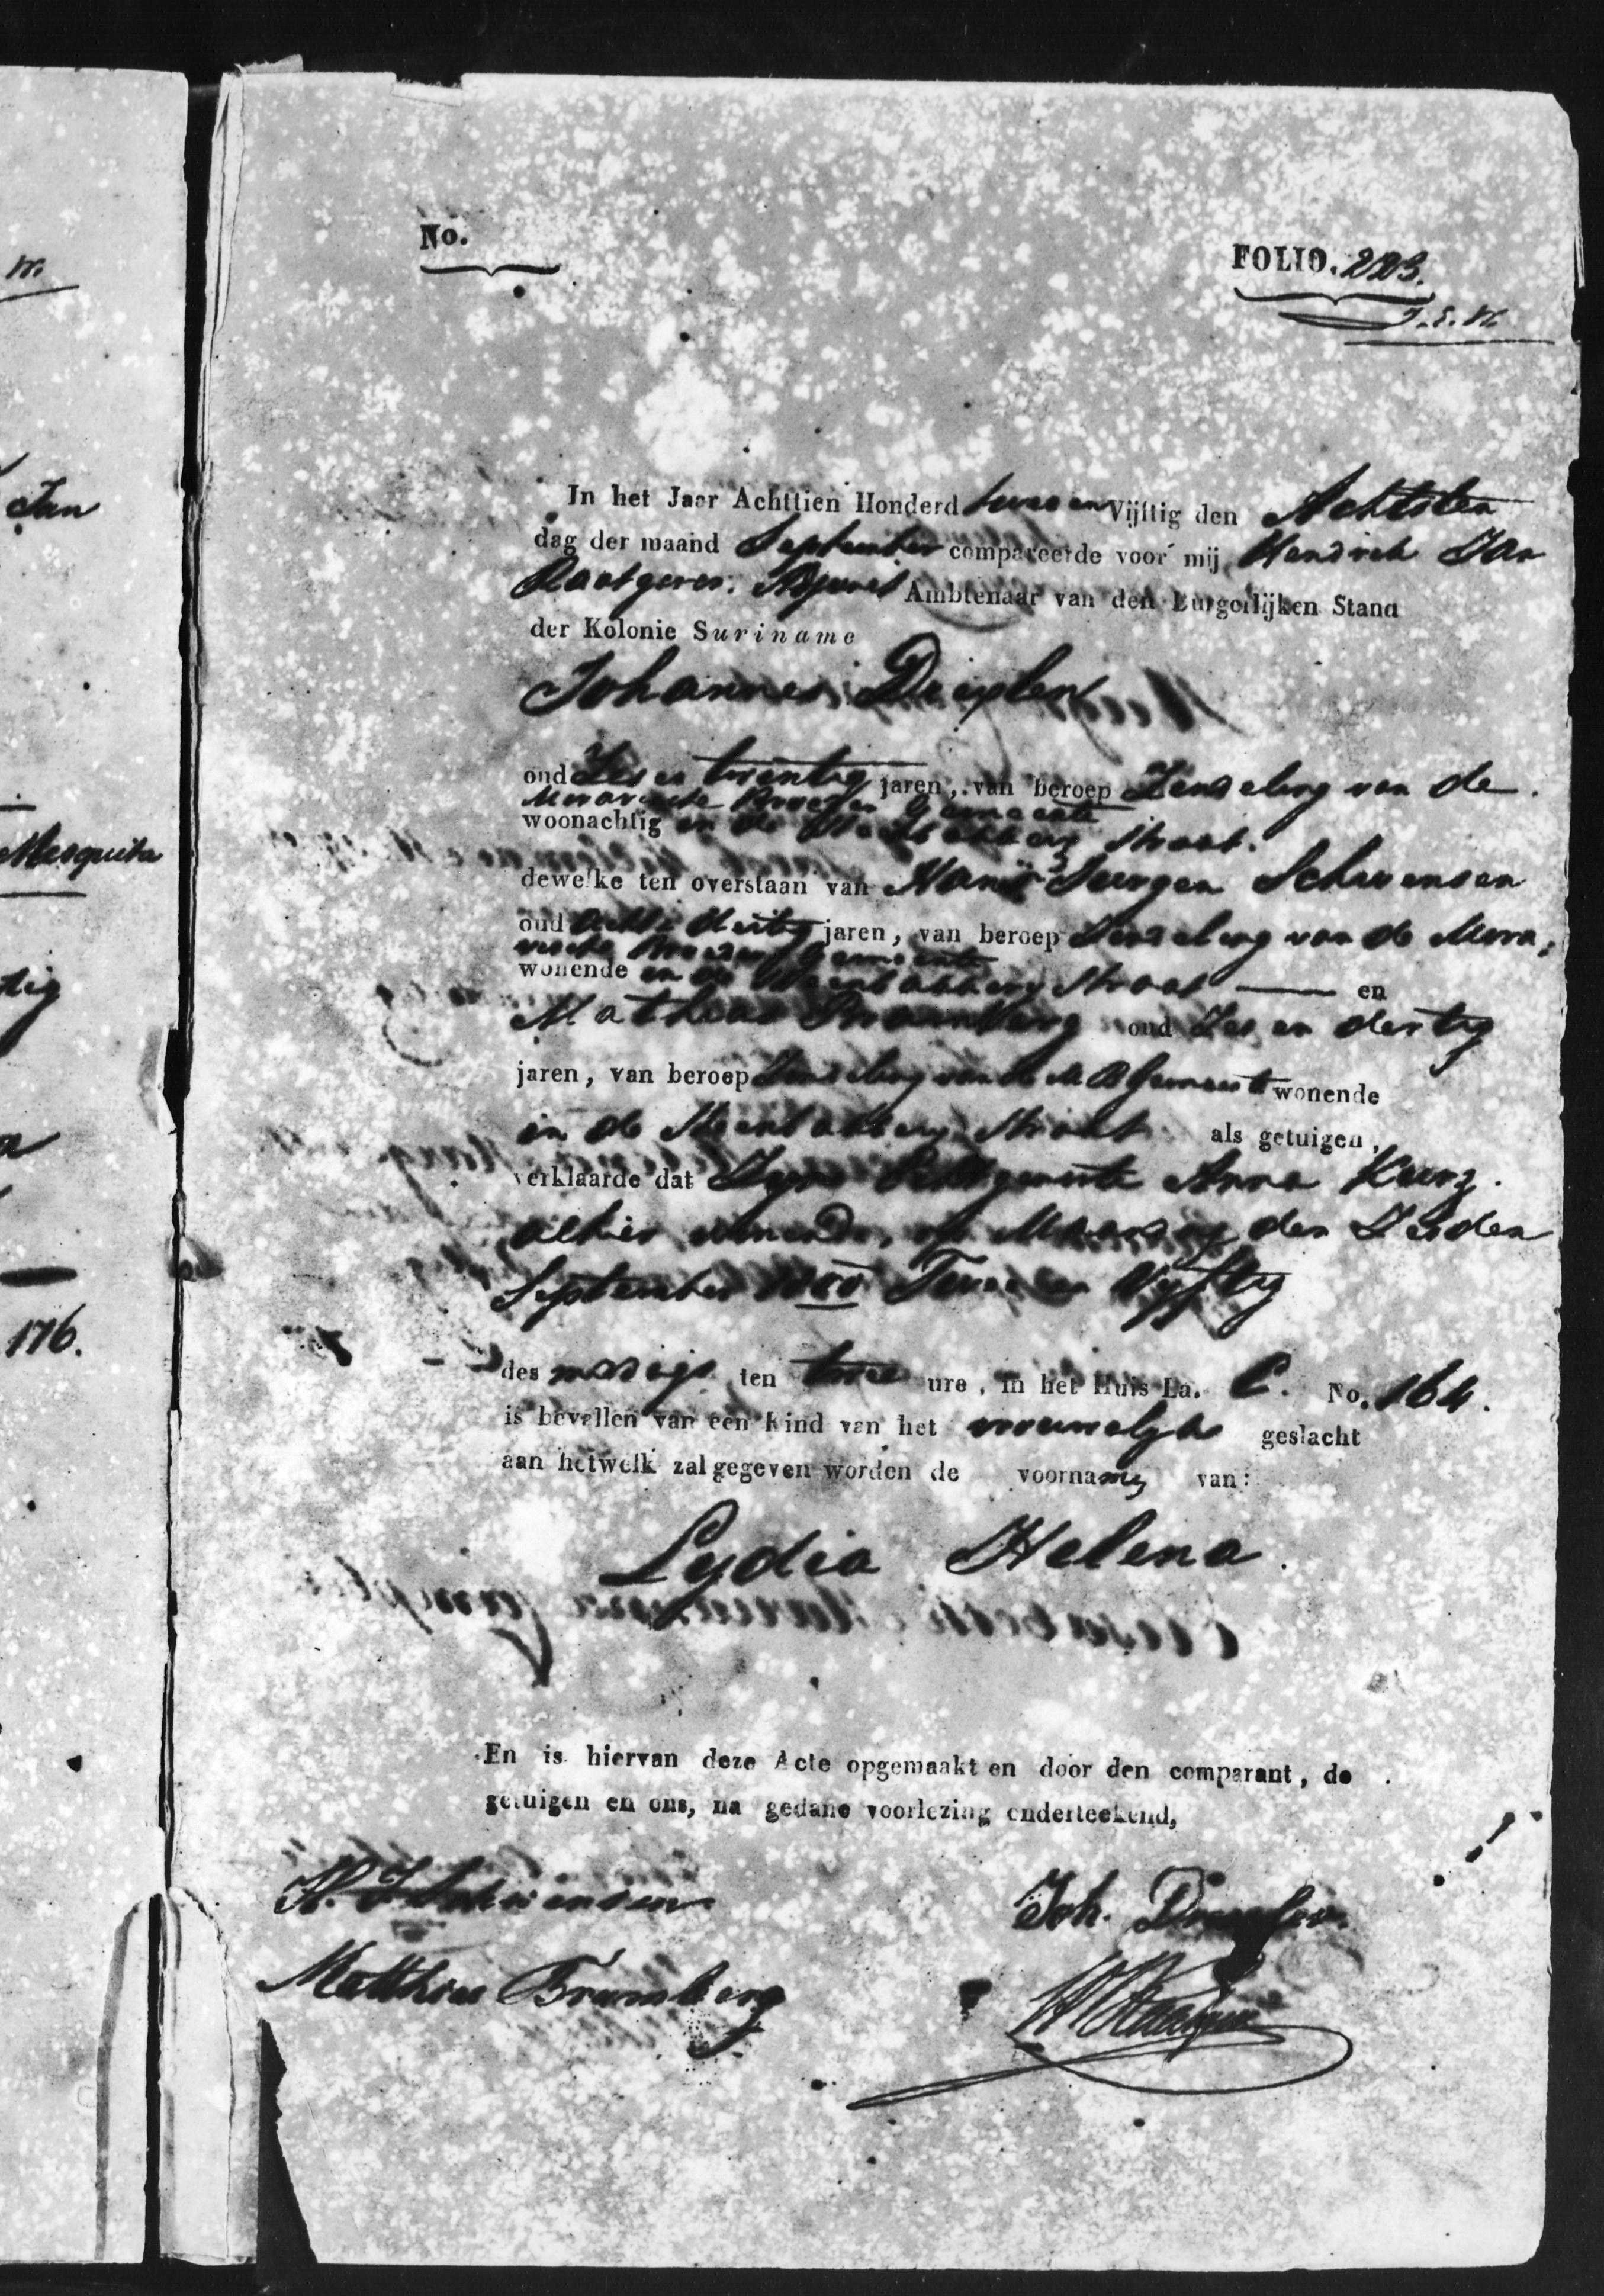 m.
Jan
Mesquita
tig
a
176.
No.
FOLIO. 223.
J.E.W.
In het Jaar Achttien Honderd twee en Vijftig den Achtsten
dag der maand September compareerde voor mij Hendrick Jan
Raatgever. Adjunct Ambtenaar van den Burgerlijken Stand
der Kolonie Suriname
Johannes Drexler
oud Zes en twintig jaren, van beroep Zendeling van de
Moravische Broeder Gemeente
woonachtig in de Steenbakkerij Straat.
dewelke ten overstaan van Hans Jurgen Schwensen
oud Acht en dertig jaren, van beroep Zendeling van de Mora,
vische Broeder Gemeente
wonende in de Steenbakkerij Straat en
Mathias Bramberg oud Zes en dertig
jaren, van beroep Zendeling van de M B Gemeente wonende
in de Steenbakkerij Straat als getuigen,
verklaarde dat Zyne Echtgenoote Anna Kunz
alhier wonende, op Maandag den Zesden
September 1800 Twee en Vyftig
des middags ten twee ure, in het Huis La. C. No. 164.
is bevallen van een Kind van het vrouwelyk geslacht
aan hetwelk zal gegeven worden de voornamen van:
Lydia Helena.
En is hiervan deze Acte opgemaakt en door den comparant, de
getuigen en ons, na gedane voorlezing onderteekend,
H. J. Schwensen
Joh. Drexler.
Matthias Bramberg